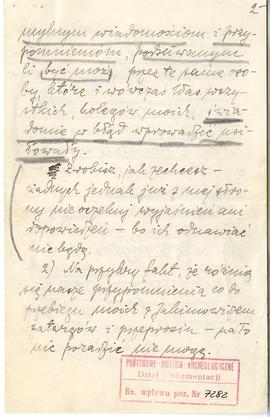 2.
mylnym wiadomościom i przy-
pomnieniom, podsuwanym
Ci być może, przez te same oso-
by, które i wówczas Was wszy-
stkich, kolegów moich, świa-
domie w błąd wprowadzić usi-
łowały.
Zrobisz, jak zechcesz –
żadnych jednak już z mej stro-
ny nie oczekuj wyjaśnień ani
dopowiedzeń – bo ich odnawiać
nie będę.
2) Na przykry fakt, że różnią
się nasze przypomnienia co do
przebiegu moich z Jakimowiczem
zatargów i przeprosin – na to
nic poradzić nie mogę.
PAŃSTWOWE MUZEUM ARCHEOLOGICZNE
Dział Dokumentacji
Ks. wpływu poz. Nr 7282